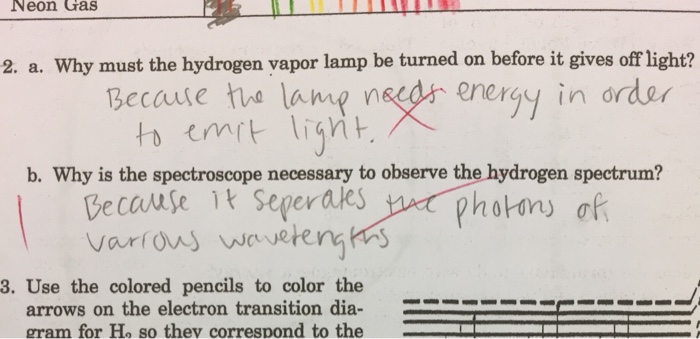 Neon Gas
2. a. Why must the hydrogen vapor lamp be turned on before it gives off light?
Because the lamp needs energy in order
to emit light.
b. Why is the spectroscope necessary to observe the hydrogen spectrum?
Because it seperates the photons of
various wavelengths
3. Use the colored pencils to color the
arrows on the electron transition dia-
gram for H₂ so they correspond to the